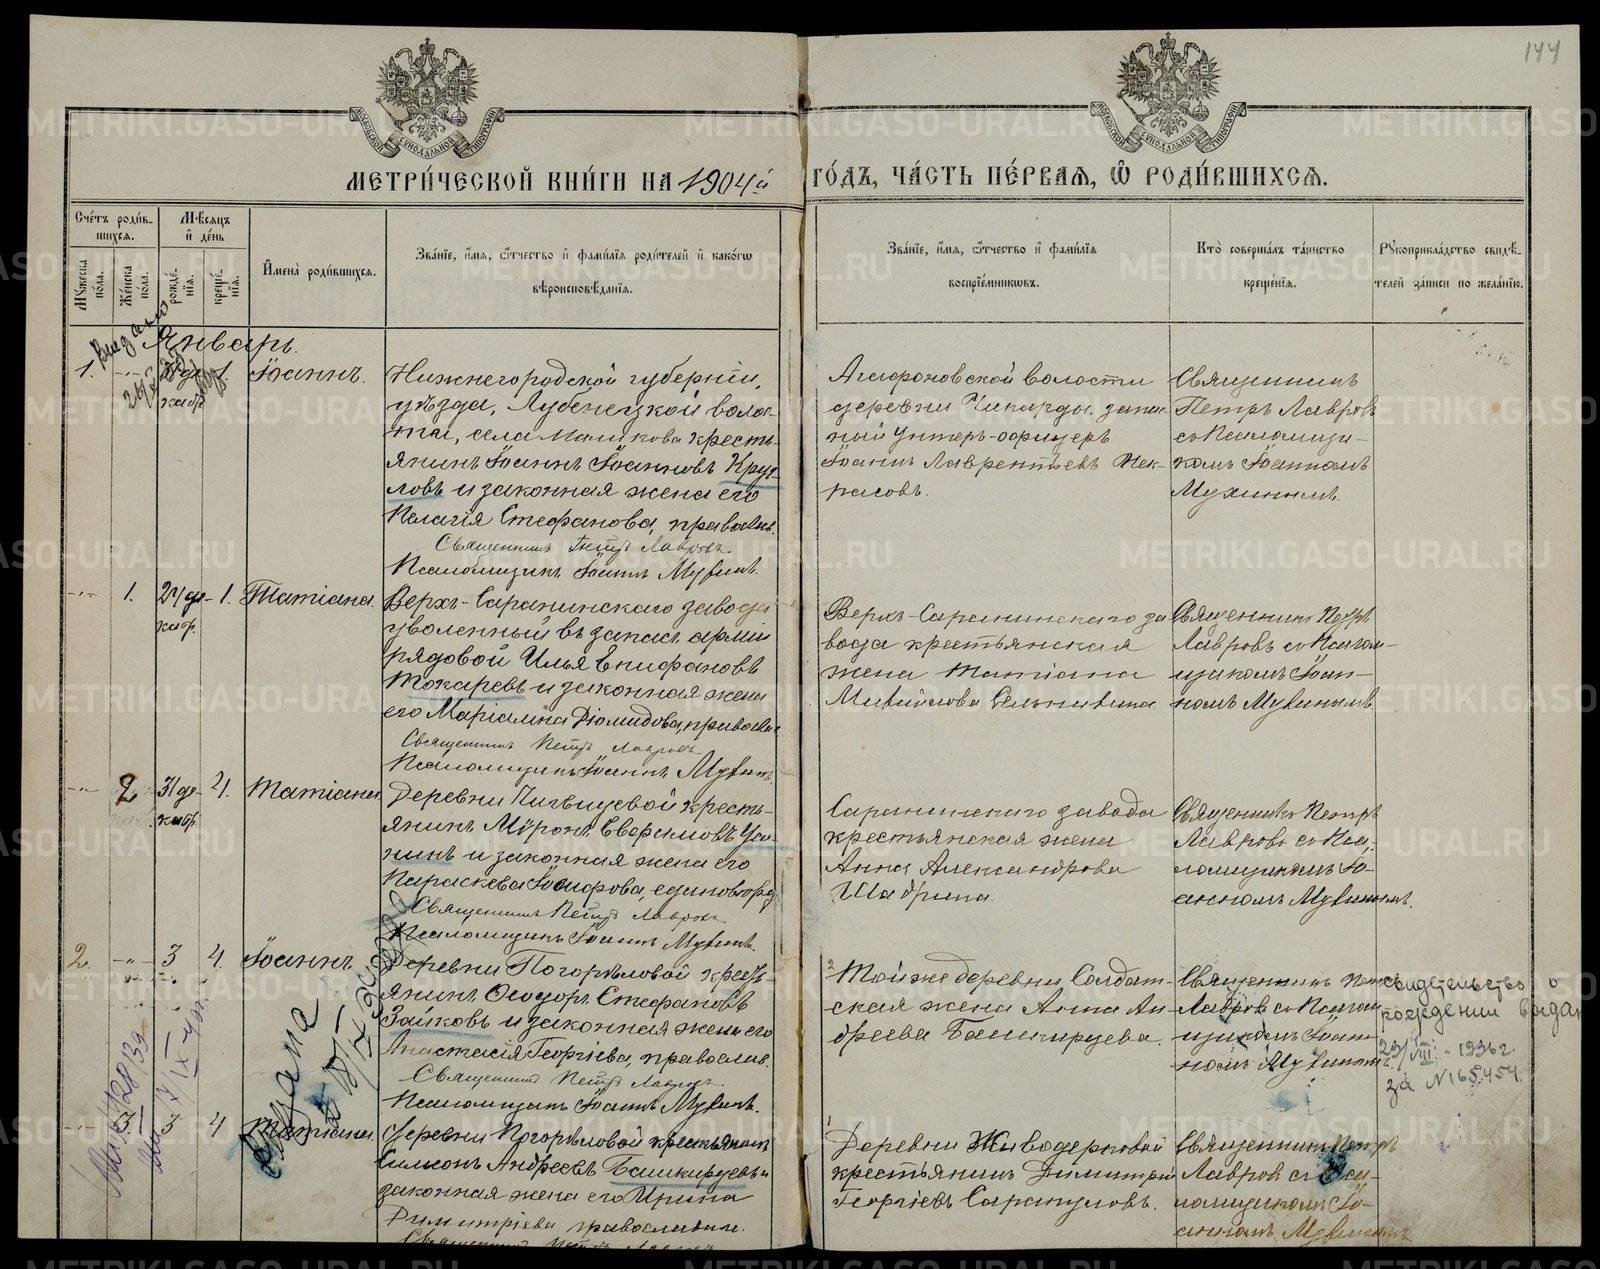 144
МЕТРИ́ЧЕСКОЙ КНИ́ГИ НА 1904й ГО́ДЪ, ЧА́СТЬ ПЕ́РВАѦ, Ѽ РОДИ́ВШИХСѦ.
Сче́тъ роди́в-
шихсѧ.
Мꙋжеска по́ла.
Же́нска по́ла.
Мѣ́сѧцъ и҆ де́нь
рожде́нїѧ.
креще́нїѧ.
И҆мена̀ роди́вшихсѧ.
Зва́нїе, и҆́мѧ, ѻ҆́тчество и҆ фами́лїѧ роди́телей и҆ како́гѡ
вѣроисповѣ́данїѧ.
Зва́нїе, и҆́мѧ, ѻ҆́тчество и҆ фами́лїѧ
воспрїе́мникѡвъ.
Кто̀ соверша́лъ та́инство
креще́нїѧ.
Рꙋкоприкла́дство свидѣ́-
телей за́писи по жела́нїю.
Январь.
1. -"- 31 де-кабр. 1. Іоаннъ.
Нижнегородской губерніи,
уѣзда, волос-
ти, села кресть-
янинъ Іоаннъ Іоанновъ Круг-
ловъ и законная жена его
Пелагія Стефанова, православн.
Священникъ Петръ Лавровъ.
Псаломщикъ Іоаннъ Мухинъ.
Агафоновской волости
деревни Чикарды запас-
ный унтеръ-офицеръ
Іоаннъ Лаврентьевъ Нек-
расовъ.
Священникъ
Петръ Лавровъ
съ Псаломщи-
комъ Іоанномъ
Мухинымъ.
-"- 1. 24 де-кабр. 1. Татіана.
Верхъ-Саранинскаго завода
уволенный въ запасъ арміи
рядовой Илья Епифановъ
Токаревъ и законная жена
его Маріамна Діомидова, православн.
Священникъ Петръ Лавровъ.
Псаломщикъ Іоаннъ Мухинъ.
Верхъ-Саранинскаго за
вода крестьянская
жена Татіана
Михайлова
Священникъ Петръ
Лавровъ съ Псалом-
щикомъ Іоан-
номъ Мухинымъ.
-"- 2 31 де-кабр. 4. Татіана.
Деревни кресть-
янинъ Мѵронъ Евфимовъ
и законная жена его
Параскева Іосифова, единовѣрц.
Священникъ Петръ Лавровъ.
Псаломщикъ Іоаннъ Мухинъ.
Саранинскаго завода
крестьянская жена
Анна Александрова
Шадрина.
Священникъ Петръ
Лавровъ съ Пса-
ломщикомъ Іо-
анномъ Мухинымъ.
2. -"- 3 4. Іоаннъ.
Деревни Погорѣловой кресть-
янинъ Ѳеодоръ Стефановъ
Зайковъ и законная жена его
Анастасія Георгіева, православ.
Священникъ Петръ Лавровъ.
Псаломщикъ Іоаннъ Мухинъ.
Той же деревни Солдат-
ская жена Анна Ан-
дреева Башкирцева.
Священникъ Петръ
Лавровъ съ Псалом-
щикомъ Іоан-
номъ Мухинымъ.
свидетельство о
рождении выдан
23/VIII - 1936 г
за № 165454
-"- 3 3 4 Татіана.
Деревни Погорѣловой крестьянинъ
Симеонъ Андреевъ Башкирцевъ и
законная жена его Ирина
Димитріева православные.
Священникъ Петръ Лавровъ
Деревни Живодерковой
крестьянинъ Димитрій
Георгіевъ Сарапуловъ.
Священникъ Петръ
Лавровъ съ Пса-
ломщикомъ Іо-
анномъ Мухинымъ
METRIKI.GASO-URAL.RU